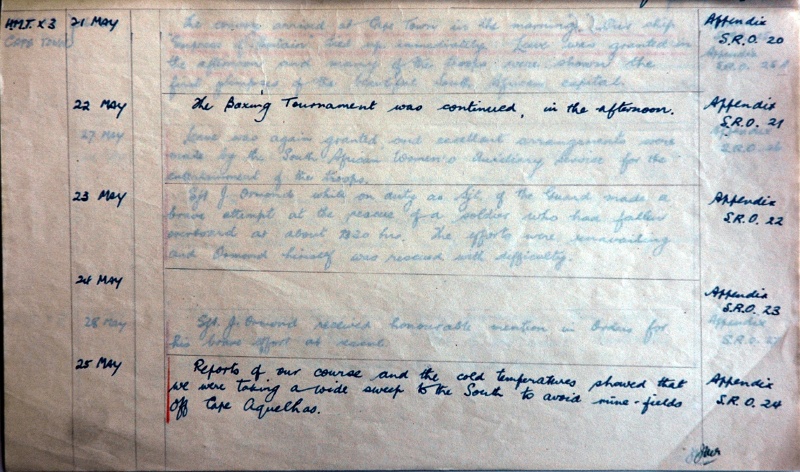 H.M.T. X3 21 MAY The convoy arrived at Cape Town in the morning. Our ship Appendix
CAPE TOWN "Empress of Britain" tied up immediately. Leave was granted in S.R.O. 20
the afternoon and many of the troops were shown the
first glimpses of the beautiful South African capital.
22 MAY The Boxing Tournament was continued, in the afternoon. Appendix
S.R.O. 21
27 MAY Leave was again granted and excellent arrangements were
made by the South African Women's Auxiliary Service for the
entertainment of the troops.
23 MAY Sgt. J. Ormond while on duty as Sgt. of the Guard made a Appendix
brave attempt at the rescue of a soldier who had fallen S.R.O. 22
overboard at about 1830 hrs. The efforts were unavailing
and Ormond himself was rescued with difficulty.
24 MAY Appendix
S.R.O. 23
28 MAY Sgt. J. Ormond received honourable mention in Orders for Appendix
his brave effort at rescue.
25 MAY Reports of our course and the cold temperatures showed that Appendix
we were taking a wide sweep to the South to avoid mine-fields S.R.O. 24
off Cape Aguelhas.